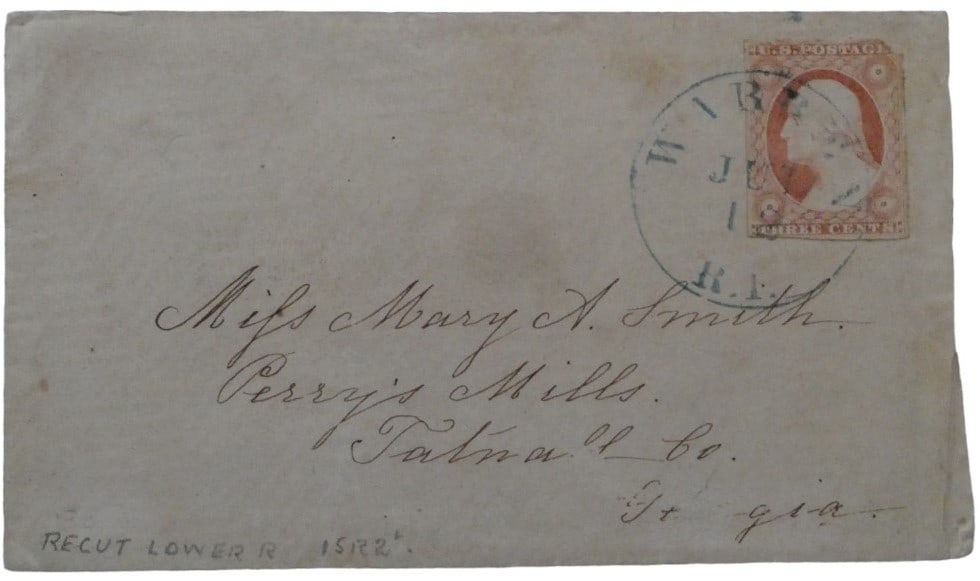 U.S. POSTAGE
THREE CENTS
WARREN
JUL
R.I.
Miſs Mary A. Smith.
Perry's Mills.
Tatnall Co.
gia.
RECUT LOWER R